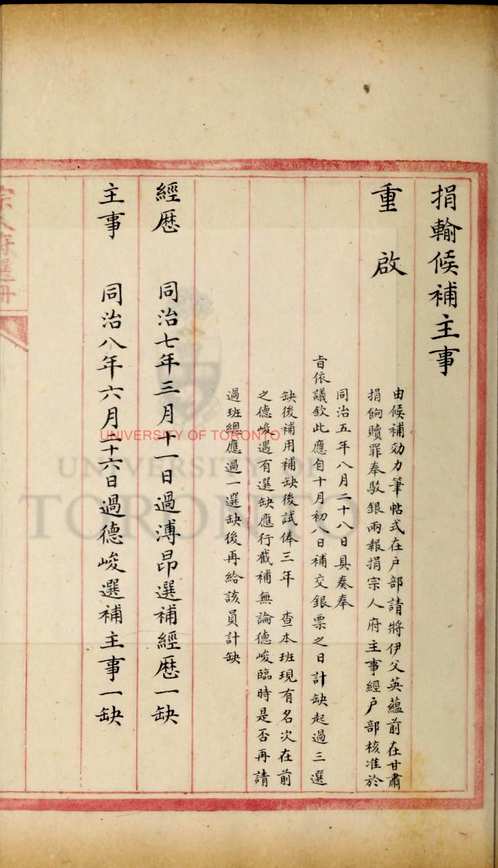 捐輸候補主事
重啟
由候補効力筆帖式在戶部請將伊父英蘊前在甘肅
捐餉贖罪奉駁銀兩報捐宗人府主事經戶部核准於
同治五年八月二十八日具奏奉
旨依議欽此應自十月初一日補交銀票之日計缺起過三選
缺後補用補缺後試俸三年 查本班現有名次在前
之德峻遇有選缺應行截補無論德峻臨時是否再請
過班總應過一選缺後再給該員計缺
經歷 同治七年三月十一日過溥昂選補經歷一缺
主事 同治八年六月二十六日過德峻選補主事一缺
UNIVERSITY OF TORONTO
UNIVERSITY OF
TORONTO